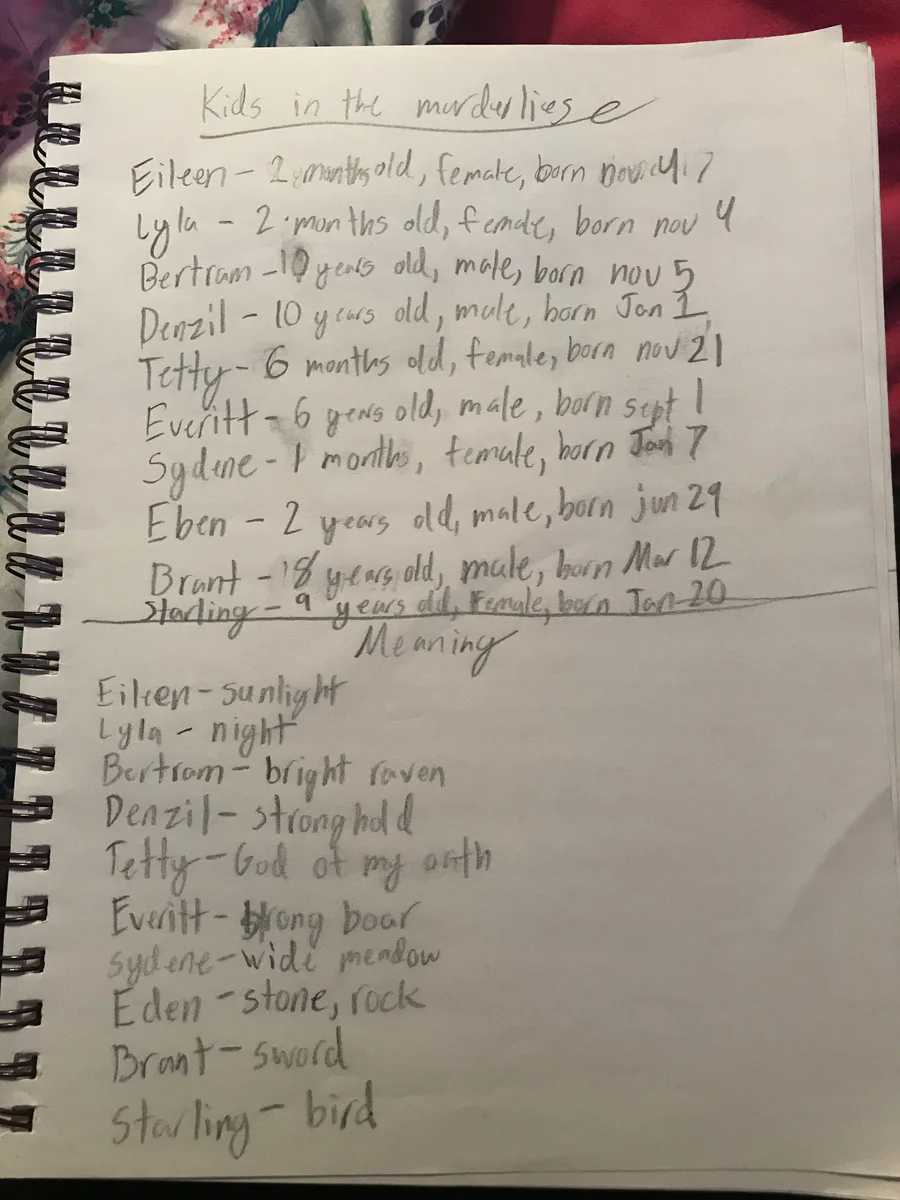 Kids in the murderliese
Eileen - 2 months old, female, born nov 17
Lyla - 2 months old, female, born nov 4
Bertram - 10 years old, male, born nov 5
Denzil - 10 years old, male, born Jan 1
Tetty - 6 months old, female, born nov 21
Everitt - 6 years old, male, born sept 1
Sydene - 1 months, female, born Jan 7
Eben - 2 years old, male, born jun 29
Brant - 18 years old, male, born Mar 12
Starling - 9 years old, Female, born Jan 20
Meaning
Eileen - sunlight
Lyla - night
Bertram - bright raven
Denzil - stronghold
Tetty - God of my oath
Everitt - boar
Sydene - wide meadow
Eden - stone, rock
Brant - sword
Starling - bird